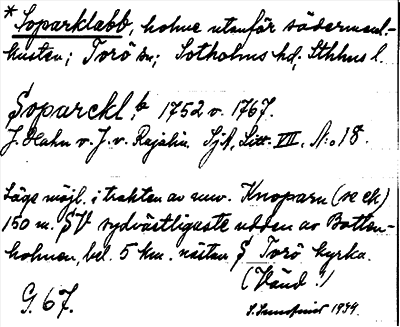 * Soparklabb, holme utanför södermanl.-
kusten; Torö sn; Sotholms hd; Sthlms l.
Soparekl.b, 1752 v. 1767.
J. Hahn v. J. v. Rajalin. Sjk. Litt. VII. No 18.
Läge möjl. i trakten av nuv. Knoparn (se ek)
150 m. SV sydvästligaste udden av Botten-
holmen, bel. 5 km. nästan S Torö kyrka.
(Vänd!)
G. 67. 1944.